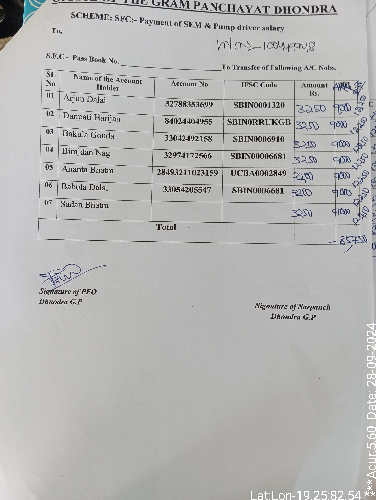 OFFICE OF THE GRAM PANCHAYAT DHONDRA
SCHEME:- SFC:- Payment of SEM & Pump driver salary
To,
S.F.C - Pass Book No.
To Transfer of Following A/C Nobs.
Sl No Name of the Account Holder Account No IFSC Code Amount Rs.
01 Arjun Dalai 32788353699 SBIN0001320 3250 9000
02 Damati Harijan 84024404955 SBIN0RRUKGB 3250 9000
03 Bakula Gouda 33042492158 SBIN0006910 3250 9000
04 Bim dan Nag 32974172566 SBIN0006681 3250 9000
05 Ananta Bhatra 28493211023159 UCBA0002849 3250 9000
06 33054205547 SBIN0006681 3250 9000
07 Sadan Bhatra 3250 9000
Total 85750
Signature of PEO
Dhondra G.P
Signature of Sarpanch
Dhondra G.P
Lat:Lon-19.25:82.54
***Acur:5.60 Date: 28-09-2024